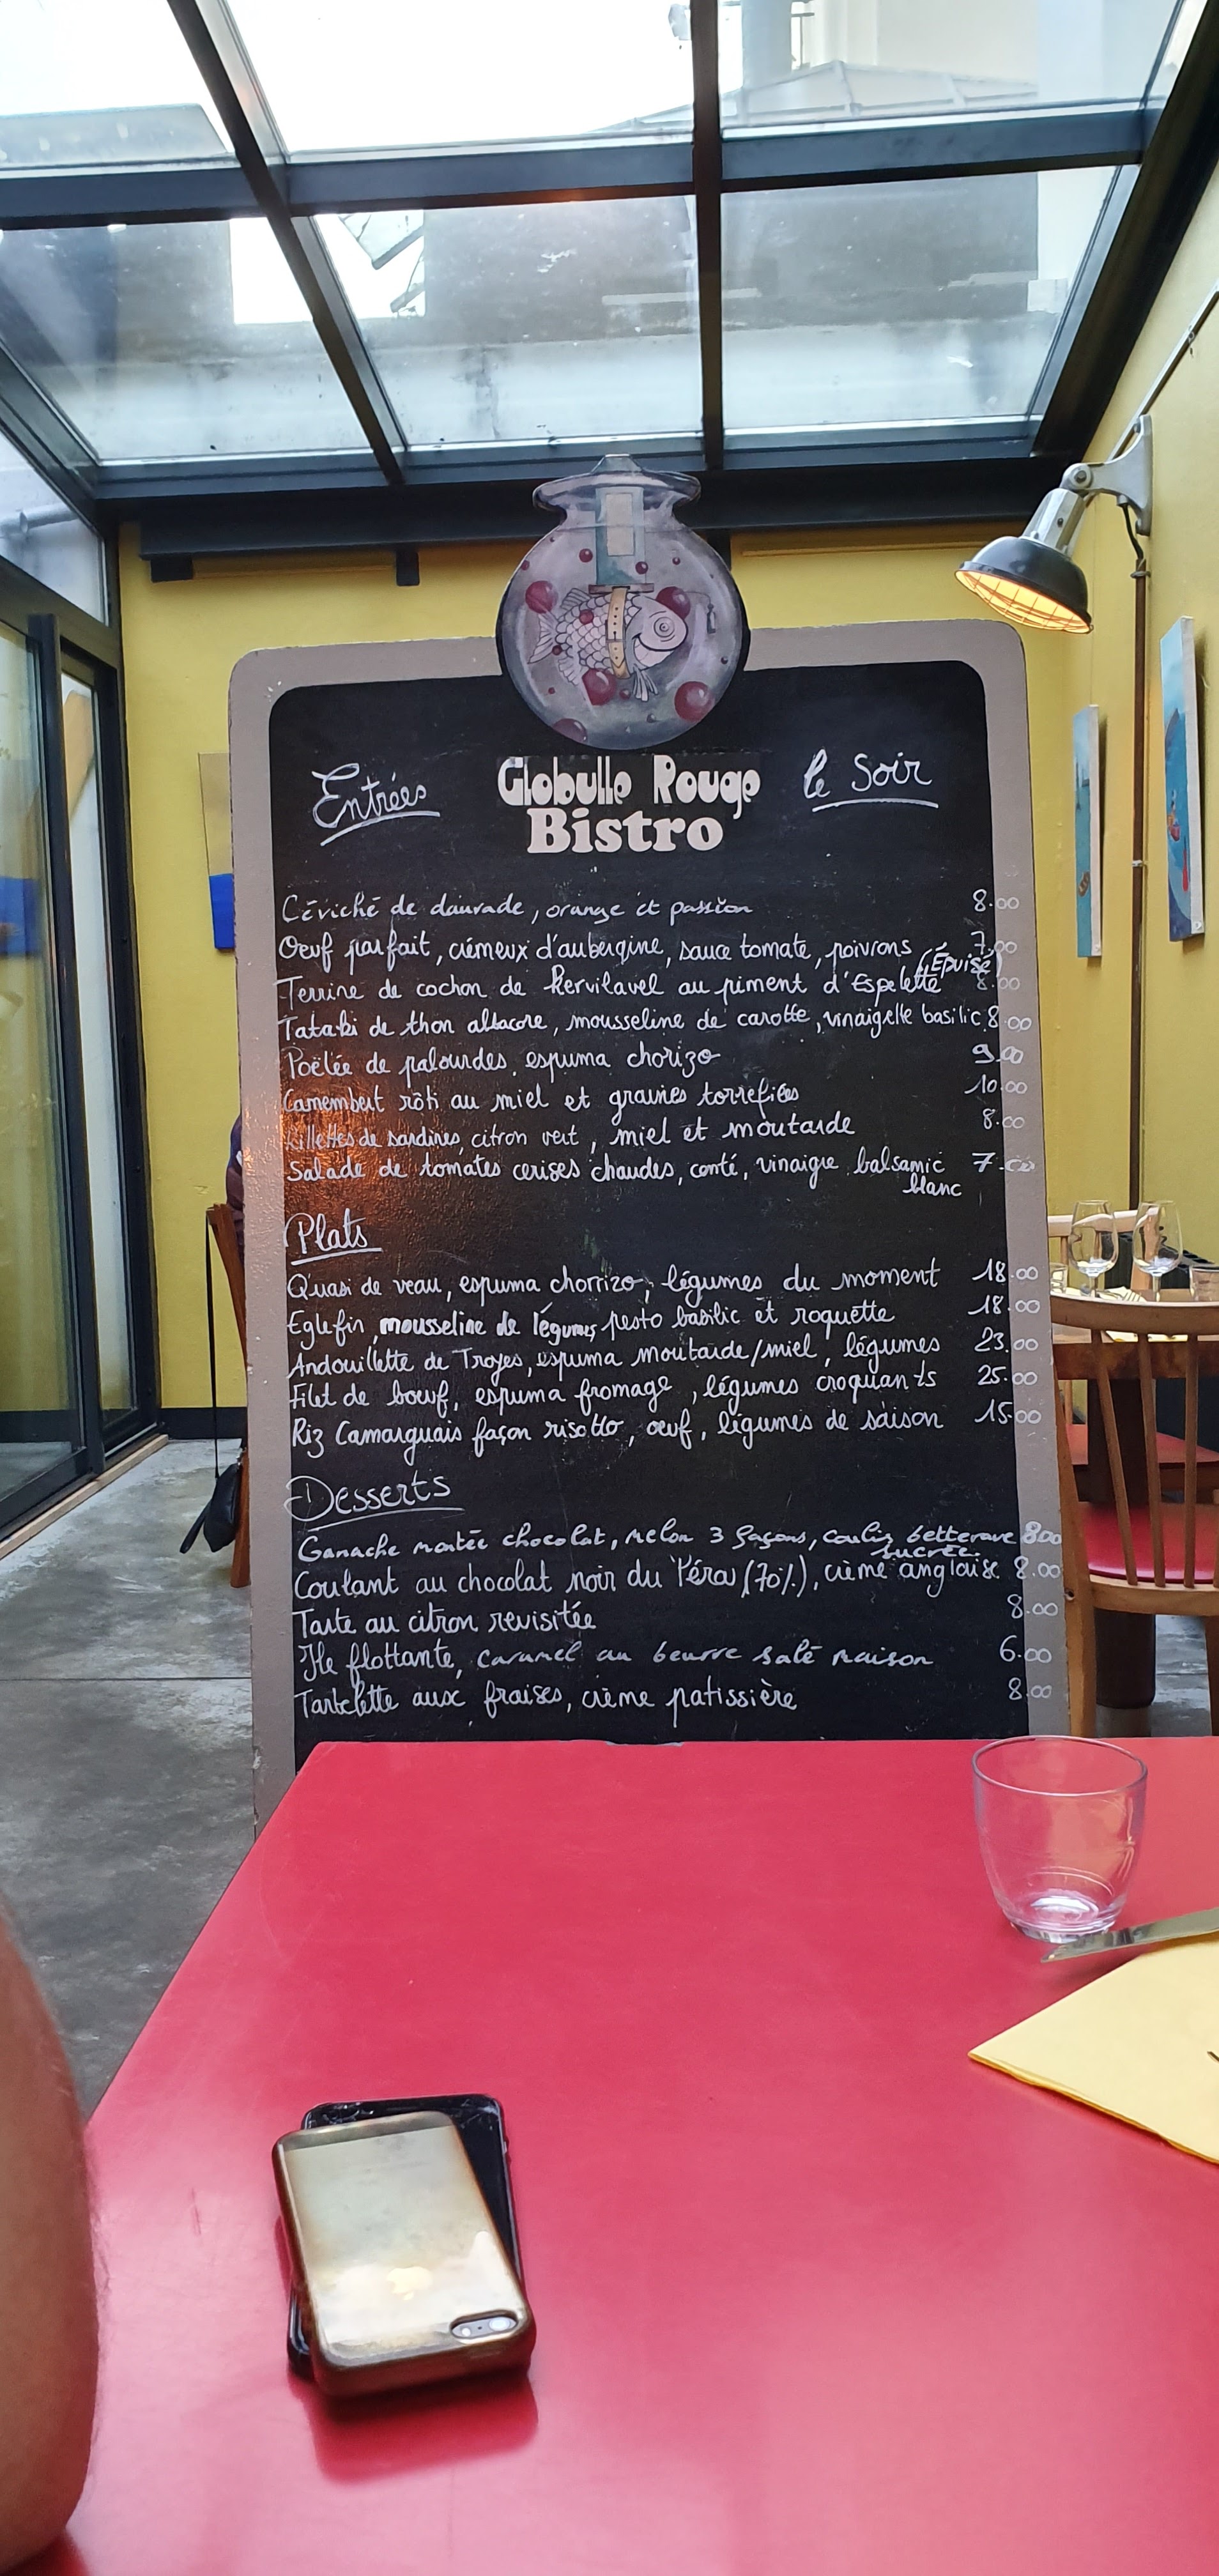 Entrées
Globulle Rouge
Bistro
le Soir
Céviché de daurade, orange et passion 8.00
Oeuf parfait, crémeux d'aubergine, sauce tomate, poivrons 7.00
(Épuisé)
Terrine de cochon de Kervilavel au piment d'Espelette 8.00
Tataki de thon albacore, mousseline de carotte, vinaigelle basilic 8.00
Poëlée de palourdes, espuma chorizo 9.00
Camembert rôti au miel et graines torrefiées 10.00
Rillettes de sardines, citron vert, miel et moutarde 8.00
Salade de tomates cerises chaudes, comté, vinaigre balsamic 7.00
blanc
Plats
Quasi de veau, espuma chorrizo, légumes du moment 18.00
Églefin, mousseline de légumes, pesto basilic et roquette 18.00
Andouillette de Troyes, espuma moutarde/miel, légumes 23.00
Filet de boeuf, espuma fromage, légumes croquants 25.00
Riz Camarguais façon risotto, œuf, légumes de saison 15.00
Desserts
Ganache montée chocolat, melon 3 façons, coulis betterave 8.00
sucrée
Coulant au chocolat noir du Pérou (70%), crème anglaise 8.00
Tarte au citron revisitée 8.00
Île flottante, caramel au beurre salé maison 6.00
Tartelette aux fraises, crème patissière 8.00